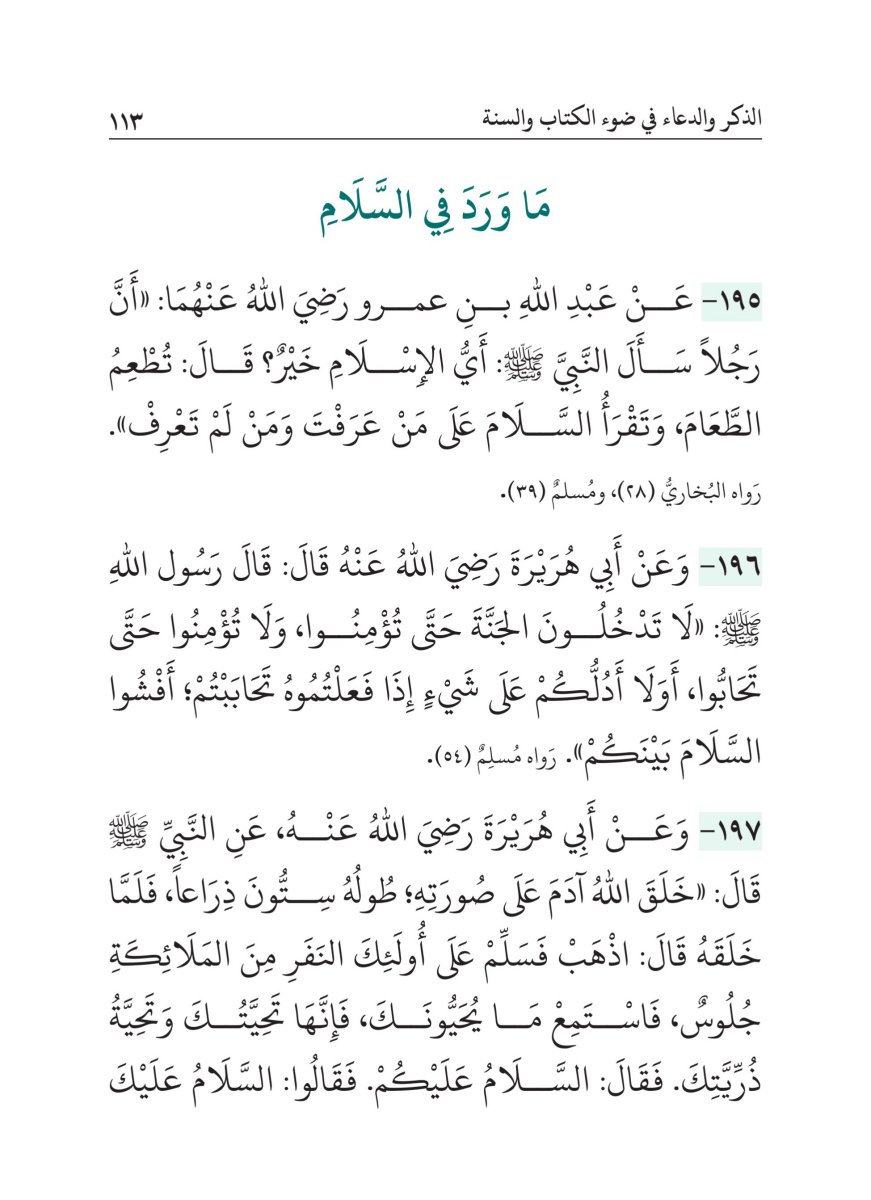 الذكر والدعاء في ضوء الكتاب والسنة ١١٣
مَا وَرَدَ فِي السَّلَامِ
١٩٥- عَـــنْ عَبْدِ اللهِ بـــنِ عمـــرو رَضِيَ اللهُ عَنْهُمَا: «أَنَّ
رَجُلاً سَـــأَلَ النَّبِيَّ ﷺ: أَيُّ الإِسْـــلَامِ خَيْرٌ؟ قَـــالَ: تُطْعِمُ
الطَّعَامَ، وَتَقْرَأُ السَّـــلَامَ عَلَى مَنْ عَرَفْتَ وَمَنْ لَمْ تَعْرِفْ».
رَواه البُخاريُّ (٢٨)، ومُسلمٌ (٣٩).
١٩٦- وَعَنْ أَبِي هُرَيْرَةَ رَضِيَ اللهُ عَنْهُ قَالَ: قَالَ رَسُول اللهِ
ﷺ: «لَا تَدْخُلُـــونَ الجَنَّةَ حَتَّى تُؤْمِنُـــوا، وَلَا تُؤْمِنُوا حَتَّى
تَحَابُّوا، أَوَلَا أَدُلُّكُمْ عَلَى شَيْءٍ إِذَا فَعَلْتُمُوهُ تَحَابَبْتُمْ؛ أَفْشُوا
السَّلَامَ بَيْنَكُمْ». رَواه مُسلِمٌ (٥٤).
١٩٧- وَعَـــنْ أَبِي هُرَيْرَةَ رَضِيَ اللهُ عَنْـــهُ، عَنِ النَّبِيِّ ﷺ
قَالَ: «خَلَقَ اللهُ آدَمَ عَلَى صُورَتِهِ؛ طُولُهُ سِـــتُّونَ ذِرَاعاً، فَلَمَّا
خَلَقَهُ قَالَ: اذْهَبْ فَسَلِّمْ عَلَى أُولَئِكَ النَفَرِ مِنَ المَلَائِكَةِ
جُلُوسٌ، فَاسْـــتَمِعْ مَـــا يُحَيُّونَـــكَ، فَإِنَّهَا تَحِيَّتُـــكَ وَتَحِيَّةُ
ذُرِّيَّتِكَ. فَقَالَ: السَّـــلَامُ عَلَيْكُمْ. فَقَالُوا: السَّلَامُ عَلَيْكَ